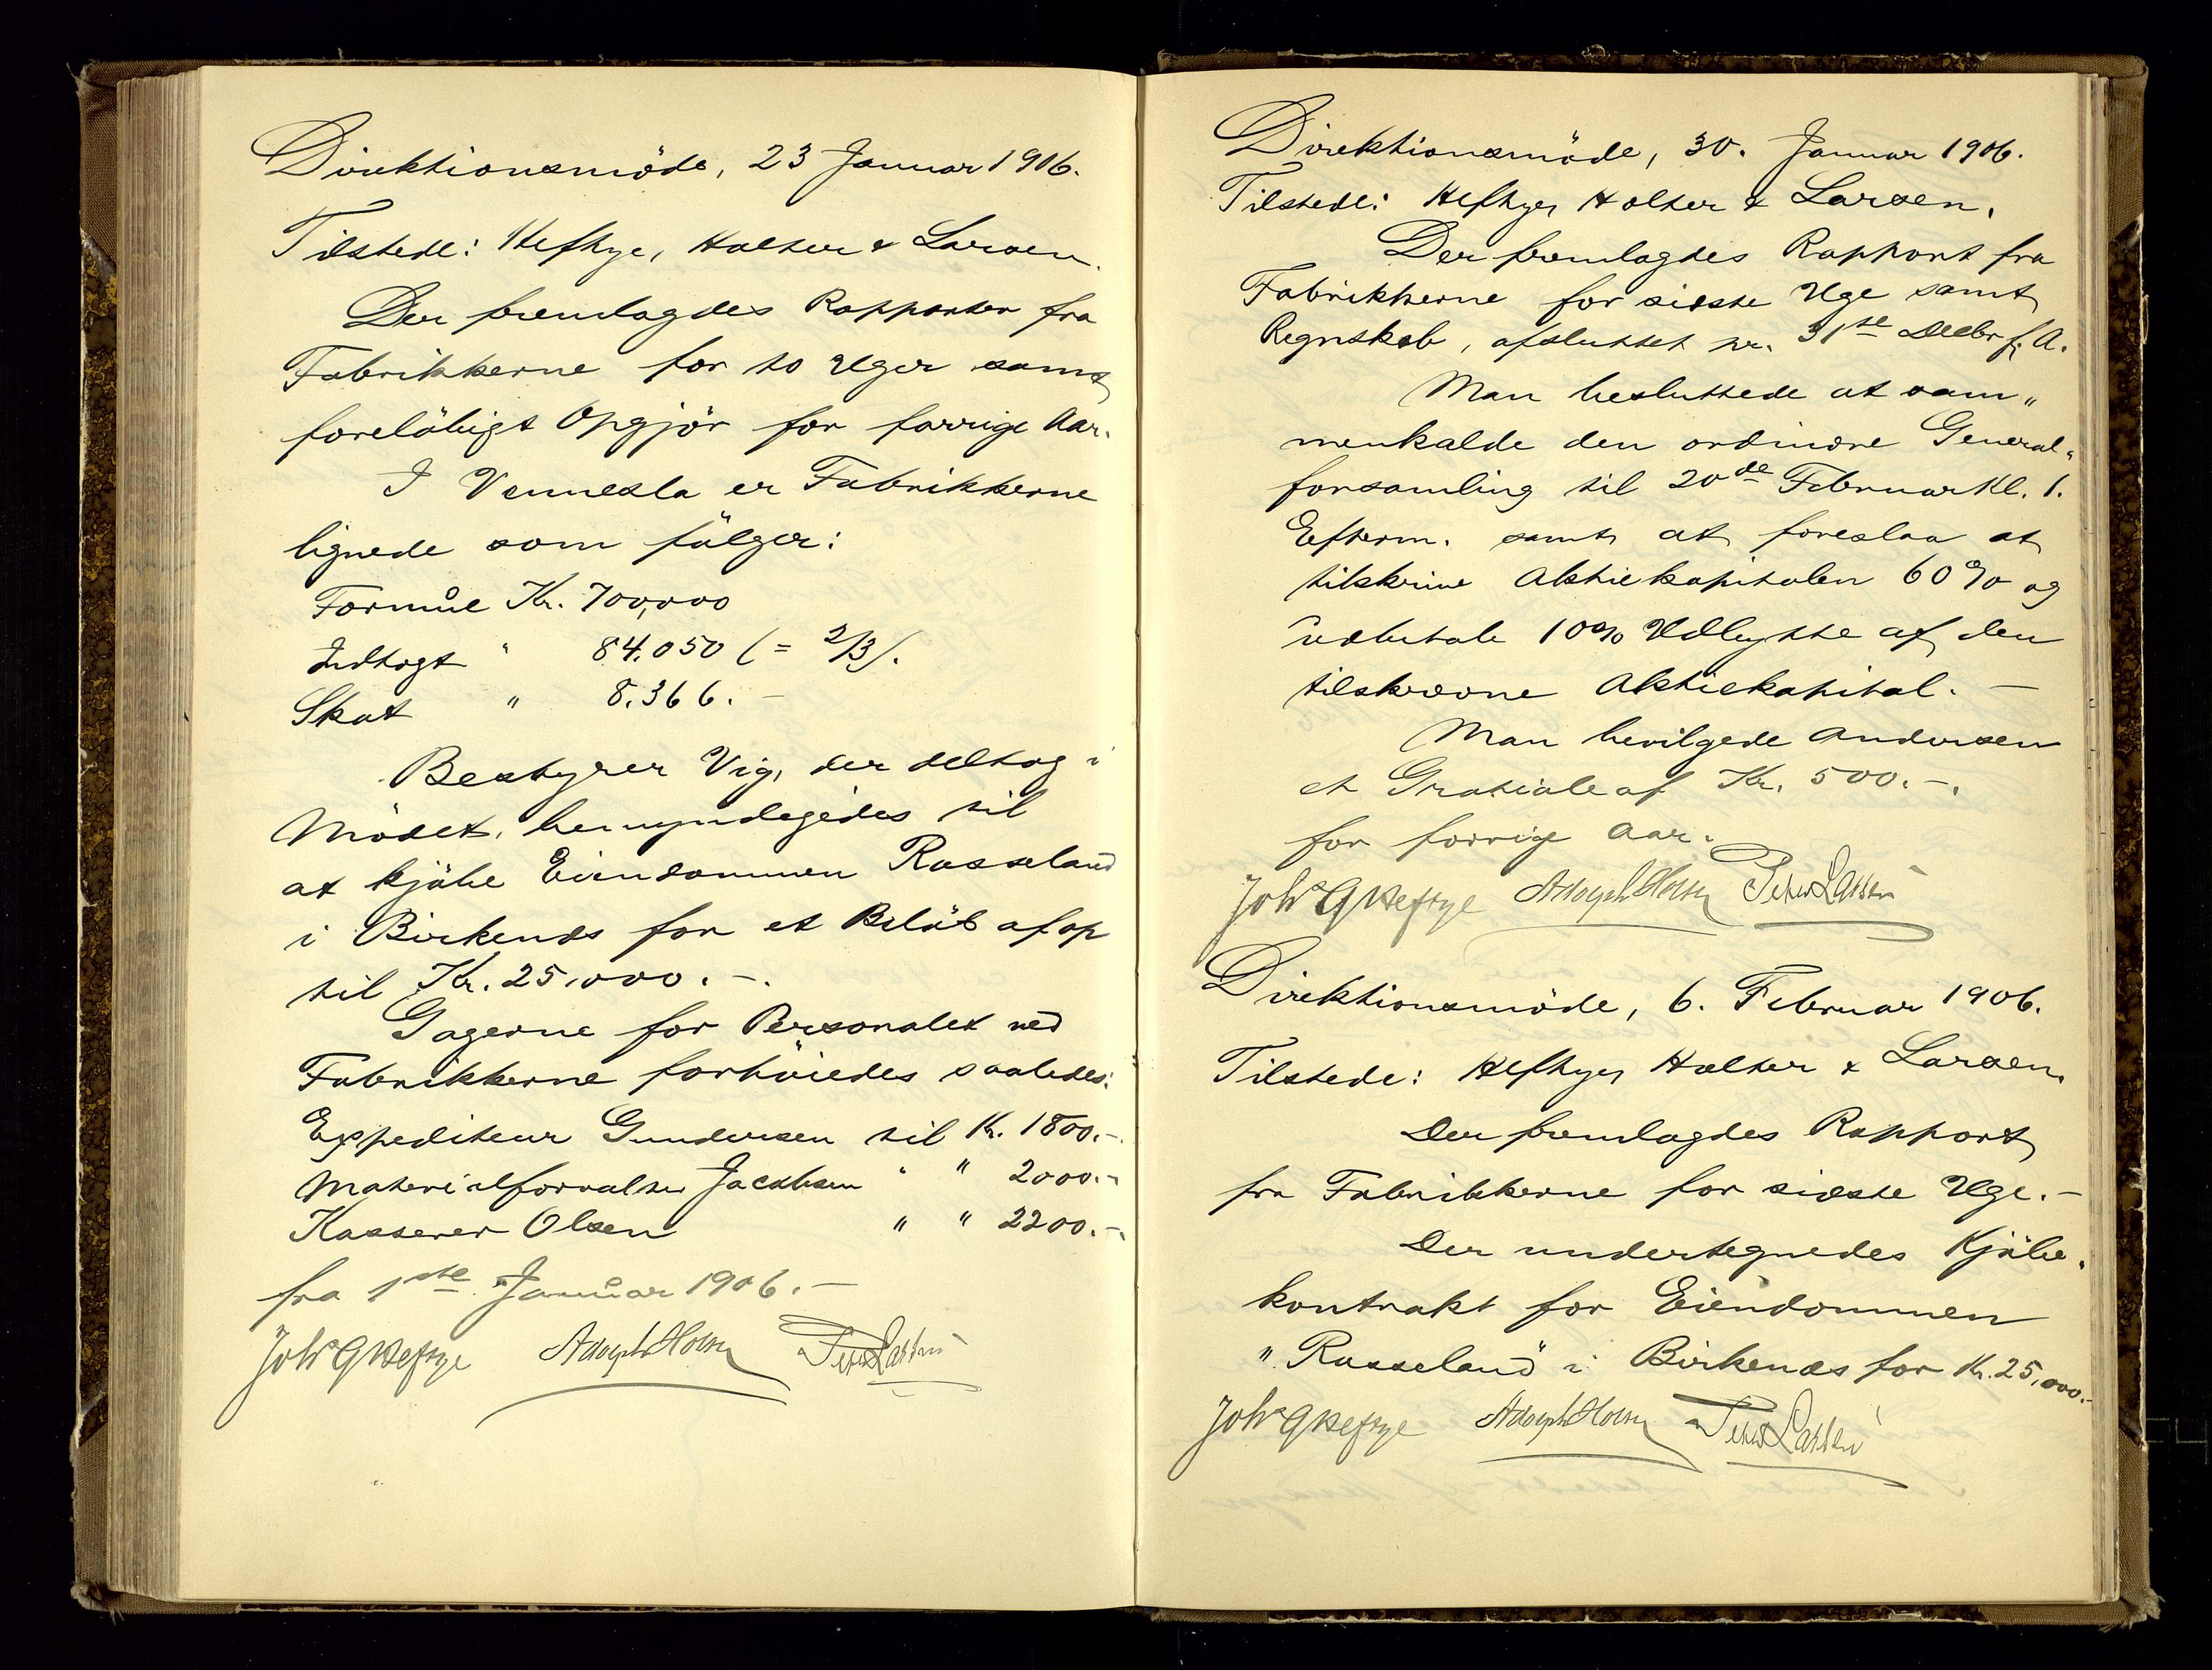 Direktionsmöde, 23 Januar 1906.
Tilstede: Heftye, Holter & Larsen.
Der fremlagdes Rapporter fra
Fabrikkerne for to Uger samt
foreløbigt Opgjör for forrige Aar.
I Vennesla er Fabrikkerne
lignede som følger:
Formue Kr. 700,000
Indtægt " 84.050 (= 2/3).
Skat " 8.366. —
Bestyrer Vig, der deltog i
Mödet, bemyndigedes til
at kjöbe Eiendommen Rosseland
i Birkenes for et Belöb af op
til Kr. 25,000. –.
Gagerne for Personalet ved
Fabrikkerne forhöiedes saaledes:
Expediteur Gundersen til Kr. 1800.–
Materialforvalter Jacobsen " " 2000.–
Kasserer Olsen " " 2200.–
fra 1ste Januar 1906. –
Johs G Heftye Adolph Holter Peter Larsen
Direktionsmöde, 30. Januar 1906.
Tilstede: Heftye, Holter & Larsen.
Der fremlagdes Rapport fra
Fabrikkerne for sidste Uge samt
Regnskab, afsluttet pr. 31te Decbr f. A.
Man besluttede at sam„
menkalde den ordinære General„
forsamling til 20de Februar Kl. 1.
Efterm. samt at foreslaa at
tilskrive Aktiekapitalen 60% og
udbetale 10% Udbytte af den
tilskrevne Aktiekapital. —
Man bevilgede Andersen
et Gratiale af Kr. 500. –.
for forrige Aar.
Johs G Heftye Adolph Holter Peter Larsen
Direktionsmöde, 6. Februar 1906.
Tilstede: Heftye, Holter & Larsen.
Der fremlagdes Rapport
fra Fabrikkerne for sidste Uge. –
Der undertegnedes Kjöbe„
kontrakt for Eiendommen
"Rosseland" i Birkenes for Kr. 25,000.–
Johs G Heftye Adolph Holter Peter Larsen